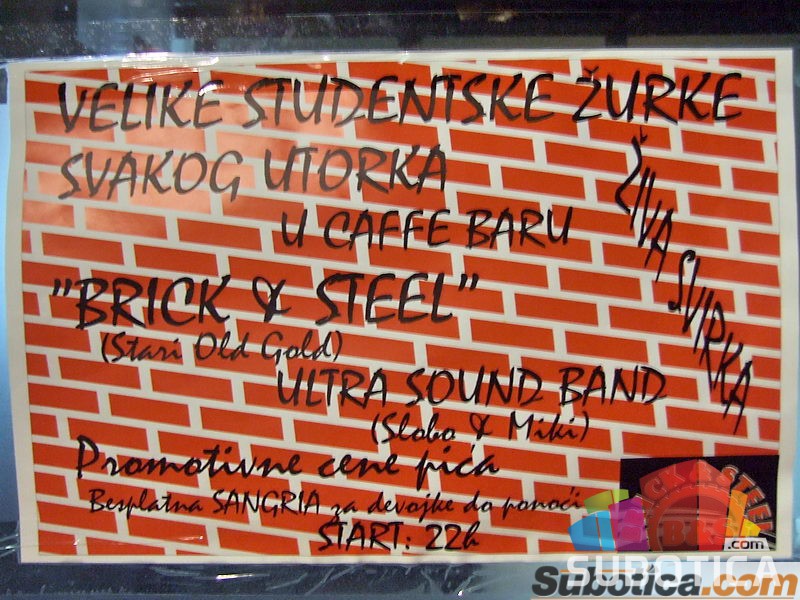 VELIKE STUDENTSKE ŽURKE
SVAKOG UTORKA
U CAFFE BARU
ŽIVA SVIRKA
"BRICK & STEEL"
(Stari Old Gold)
ULTRA SOUND BAND
(Slobo & Miki)
Promotivne cene pića
Besplatna SANGRIA za devojke do ponoći
START: 22h
.com
SUBOTICA
Subotica.com